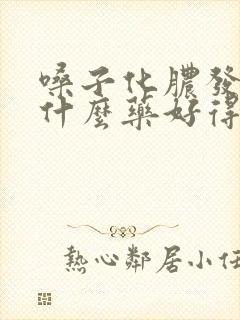 嗓子化膿發
什麼藥好得
熱心鄰居小任